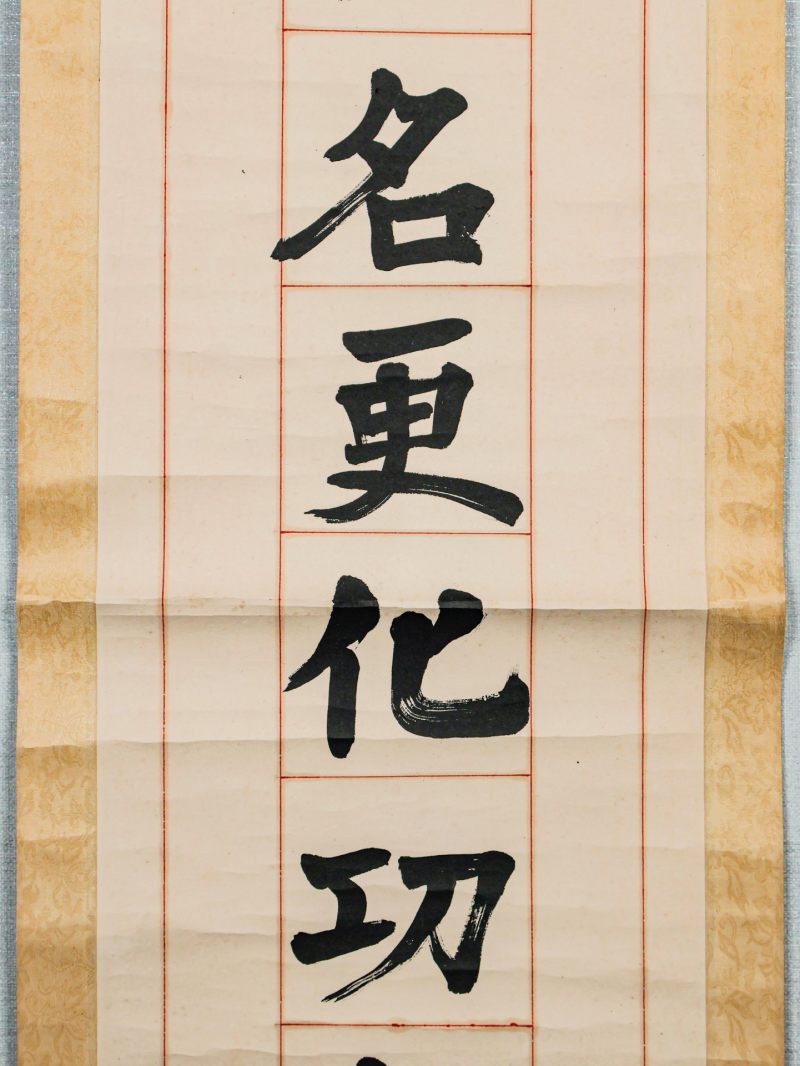 名更化功